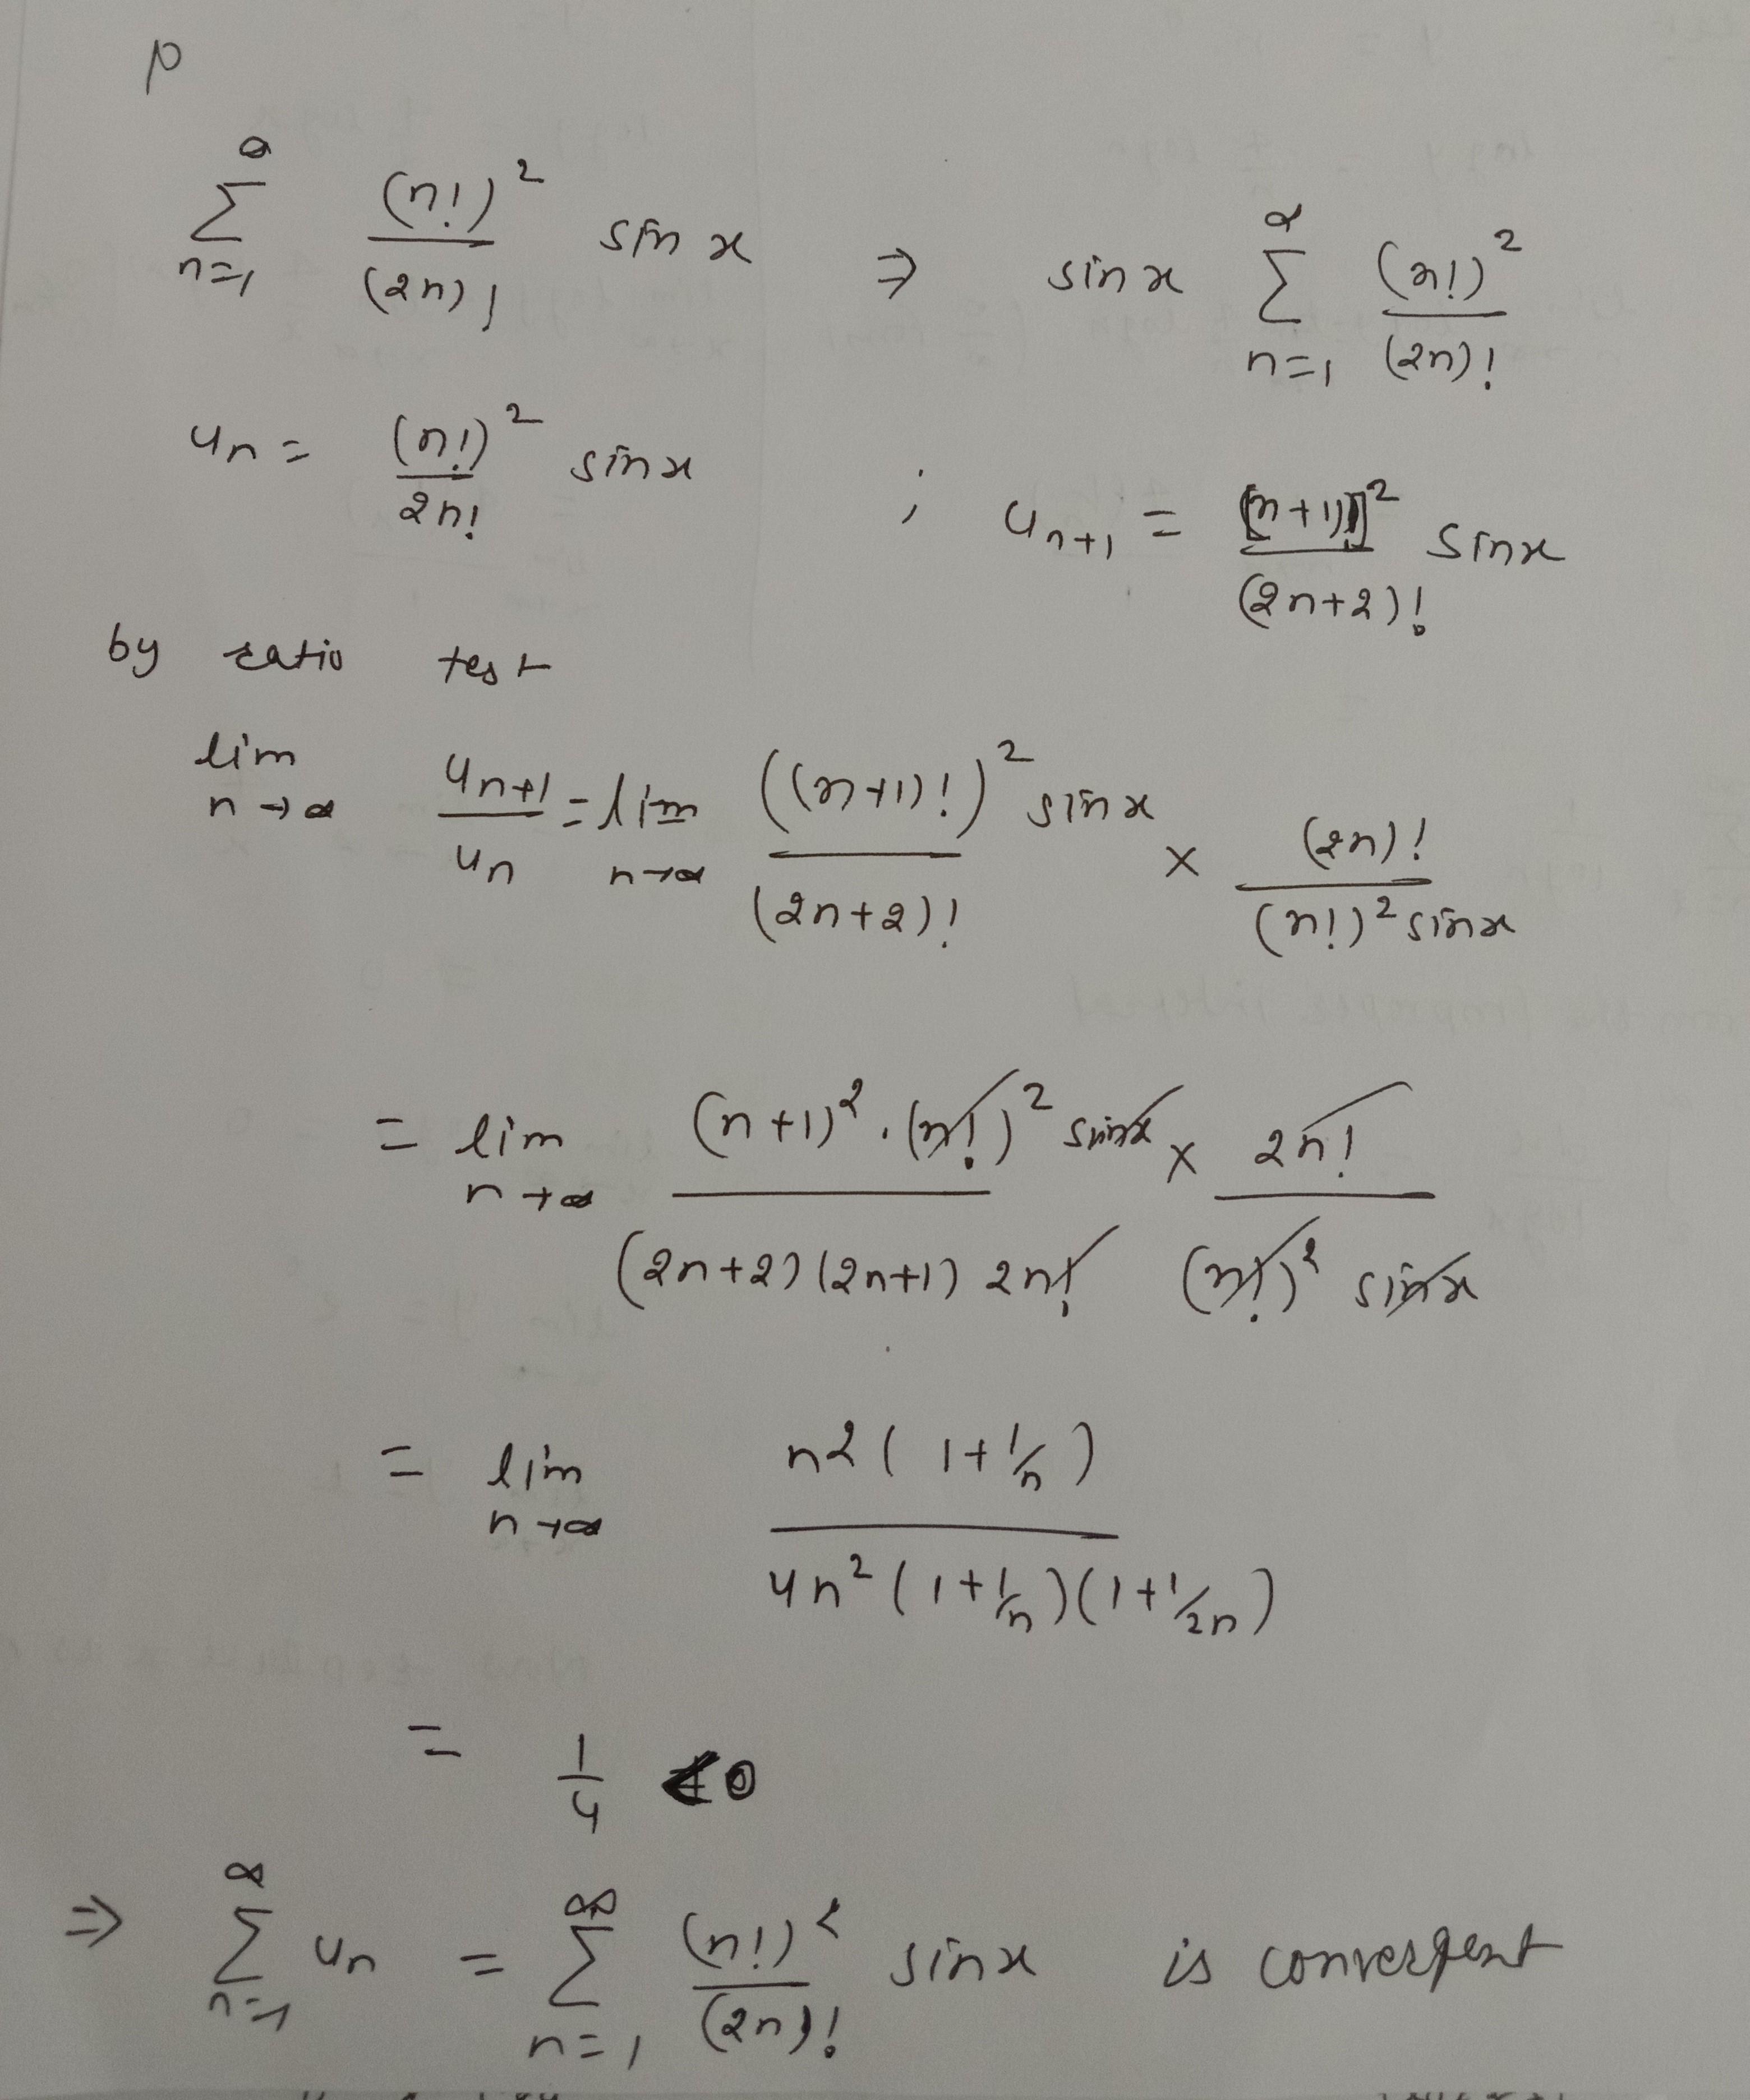 p
∞∑n=1 (n!)²/(2n)! sin x ⇒ sin x ∞∑n=1 (n!)²/(2n)!
un = (n!)²/2n! sin x ; un+1 = [(n+1)!]²/(2n+2)! sin x
by ratio test
lim n→∞ un+1/un = lim n→∞ ((n+1)!)² sin x/(2n+2)! × (2n)!/(n!)² sin x
= lim n→∞ (n+1)² . (n!)² sin x/(2n+2)(2n+1) 2n! × 2n!/(n!)² sin x
= lim n→∞ n2(1+1/n)/4n²(1+1/n)(1+1/2n)
= 1/4 < 0
⇒ ∞∑n=1 un = ∞∑n=1 (n!)²/(2n)! sin x is convergent